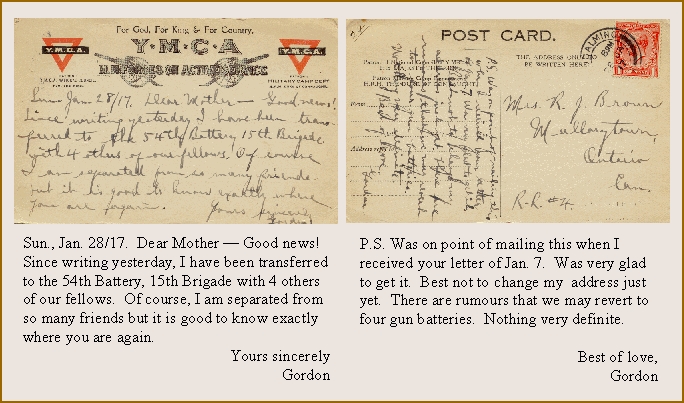 For God, For King & For Country.
Y.M.C.A
Y.M.C.A.
Y.M.C.A.
H.M. FORCES ON ACTIVE SERVICE
Sun. Jan. 28/17. Dear Mother — Good news!
Since writing yesterday I have been trans-
ferred to the 54th Battery, 15th Brigade
with 4 others of our fellows. Of course
I am separated from so many friends
but it is good to know exactly where
you are again.
Yours sincerely
Gordon
POST CARD.
THE ADDRESS ONLY TO
BE WRITTEN HERE
Mrs. R. J. Brown
Mallorytown,
Ontario
Can.
R.R. #4.
P.S. Was on point of mailing this
when I received your letter
of Jan. 7. Was very glad
to get it. Best not to change my
address just yet. There are
rumours that we may revert
to four gun batteries.
Nothing very definite.
Best of love
Gordon
Sun., Jan. 28/17. Dear Mother — Good news!
Since writing yesterday, I have been transferred
to the 54th Battery, 15th Brigade with 4 others
of our fellows. Of course, I am separated from
so many friends but it is good to know exactly
where you are again.
Yours sincerely
Gordon
P.S. Was on point of mailing this when I
received your letter of Jan. 7. Was very glad
to get it. Best not to change my address just
yet. There are rumours that we may revert to
four gun batteries. Nothing very definite.
Best of love,
Gordon